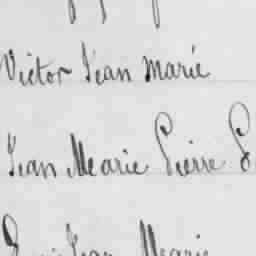 Victor Jean Marié
Jean Marie Pierre
Jean Marie